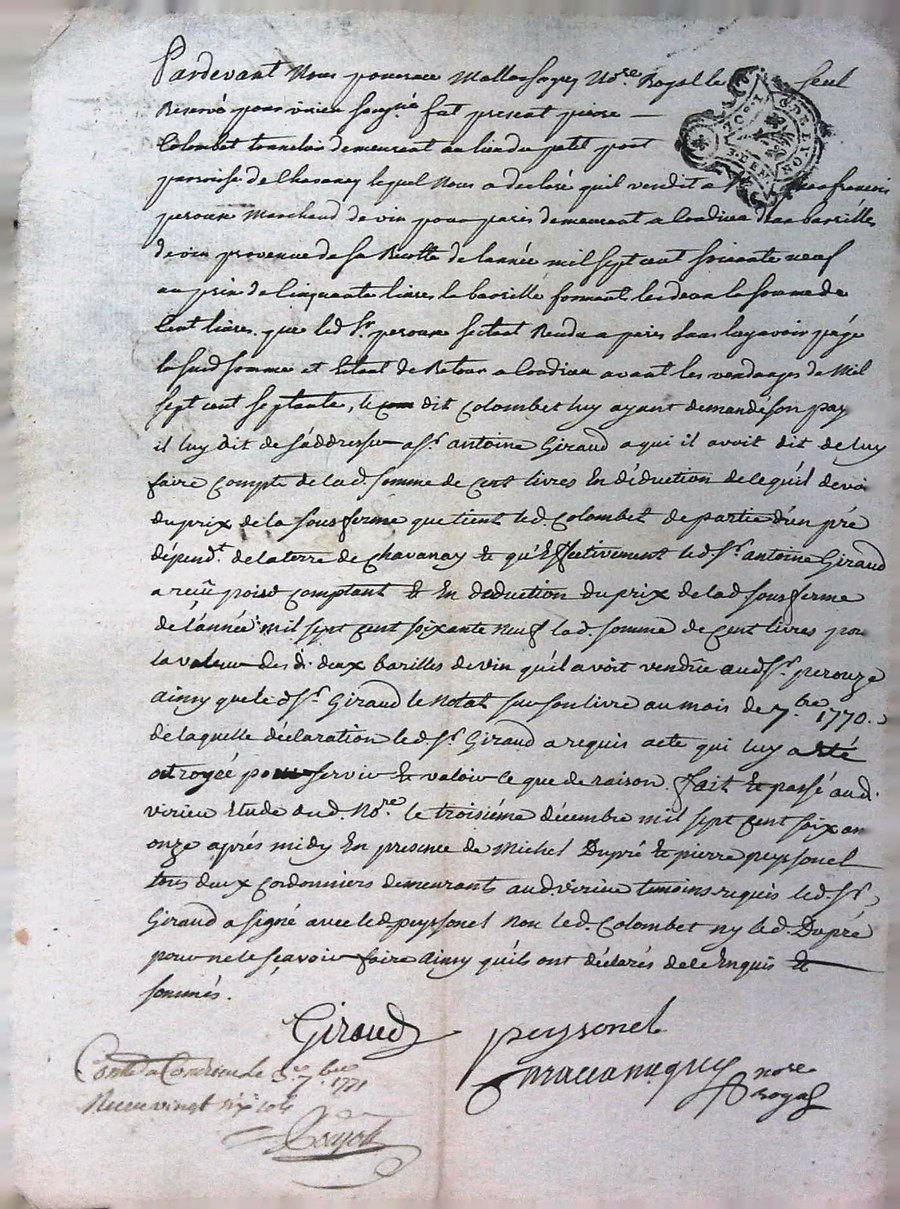 Pardevant Nous Notre Royal le seul
Reservé pour virieu soussigné fut present pierre
Colombet demeurant au lieu du petit port
paroisse de Chavanay lequel Nous a declaré quil vendit a françois
perouze Marchand de vin pour paris demeurant a Condrieu deux barrilles
de vin provenue de sa Recolte de lannée mil sept cent soixante neuf
au prix de Cinquante livres la barrille formant les deux la somme de
Cent livres. que led. Sr. perouze sectant Rendu a paris sans luy avoir payé
lad. somme et Estant de Retour a Condrieu avant les vendanges de Mil
sept cent septante, le dit Colombet luy ayant demandé son pay
il luy dit de s'addresser a Sr. antoine Giraud a qui il avoit dit de luy
faire compte de lad. somme de Cent livres En déduction de cequ'il devoi
du prix de la sousferme que tient led. Colombet de partie d'un pré
dépendt. de la terre de Chavanay Et qu'Effectivement led. Sr. antoine Giraud
a reçu comptant Et En deduction du prix de lad. sousferme
de l'année mil sept cent soixante neuf lad. somme de Cent livres pour
la valeur des d. deux barilles de vin qu'il avoit vendûe aud. Sr. perouze
ainsy que le d. Sr. Giraud le Notat sur son livre au mois de 7.bre 1770.
de laquelle déclaration led. Sr. Giraud a requis acte qui luy a été
octroyée pour servir Et valoir ce que de raison. fait Et passé aud.
virieu Etude dud. No.re le troisiéme décembre mil sept cent soixan
onze aprés midy En presence de Michel Dupré Et pierre peyssonel
tous deux Cordonniers demeurants aud. virieu temoins requis led. Sr.
Giraud a signé avec led. peyssonel Non led. Colombet ny led. Dupré
pour ne le sçavoir faire ainsy qu'ils ont déclarés de ce Enquis Et
sommés.
Giraud peyssonel
nore royal
Conlé a Condrieu le 1771
Receu vingt six sols